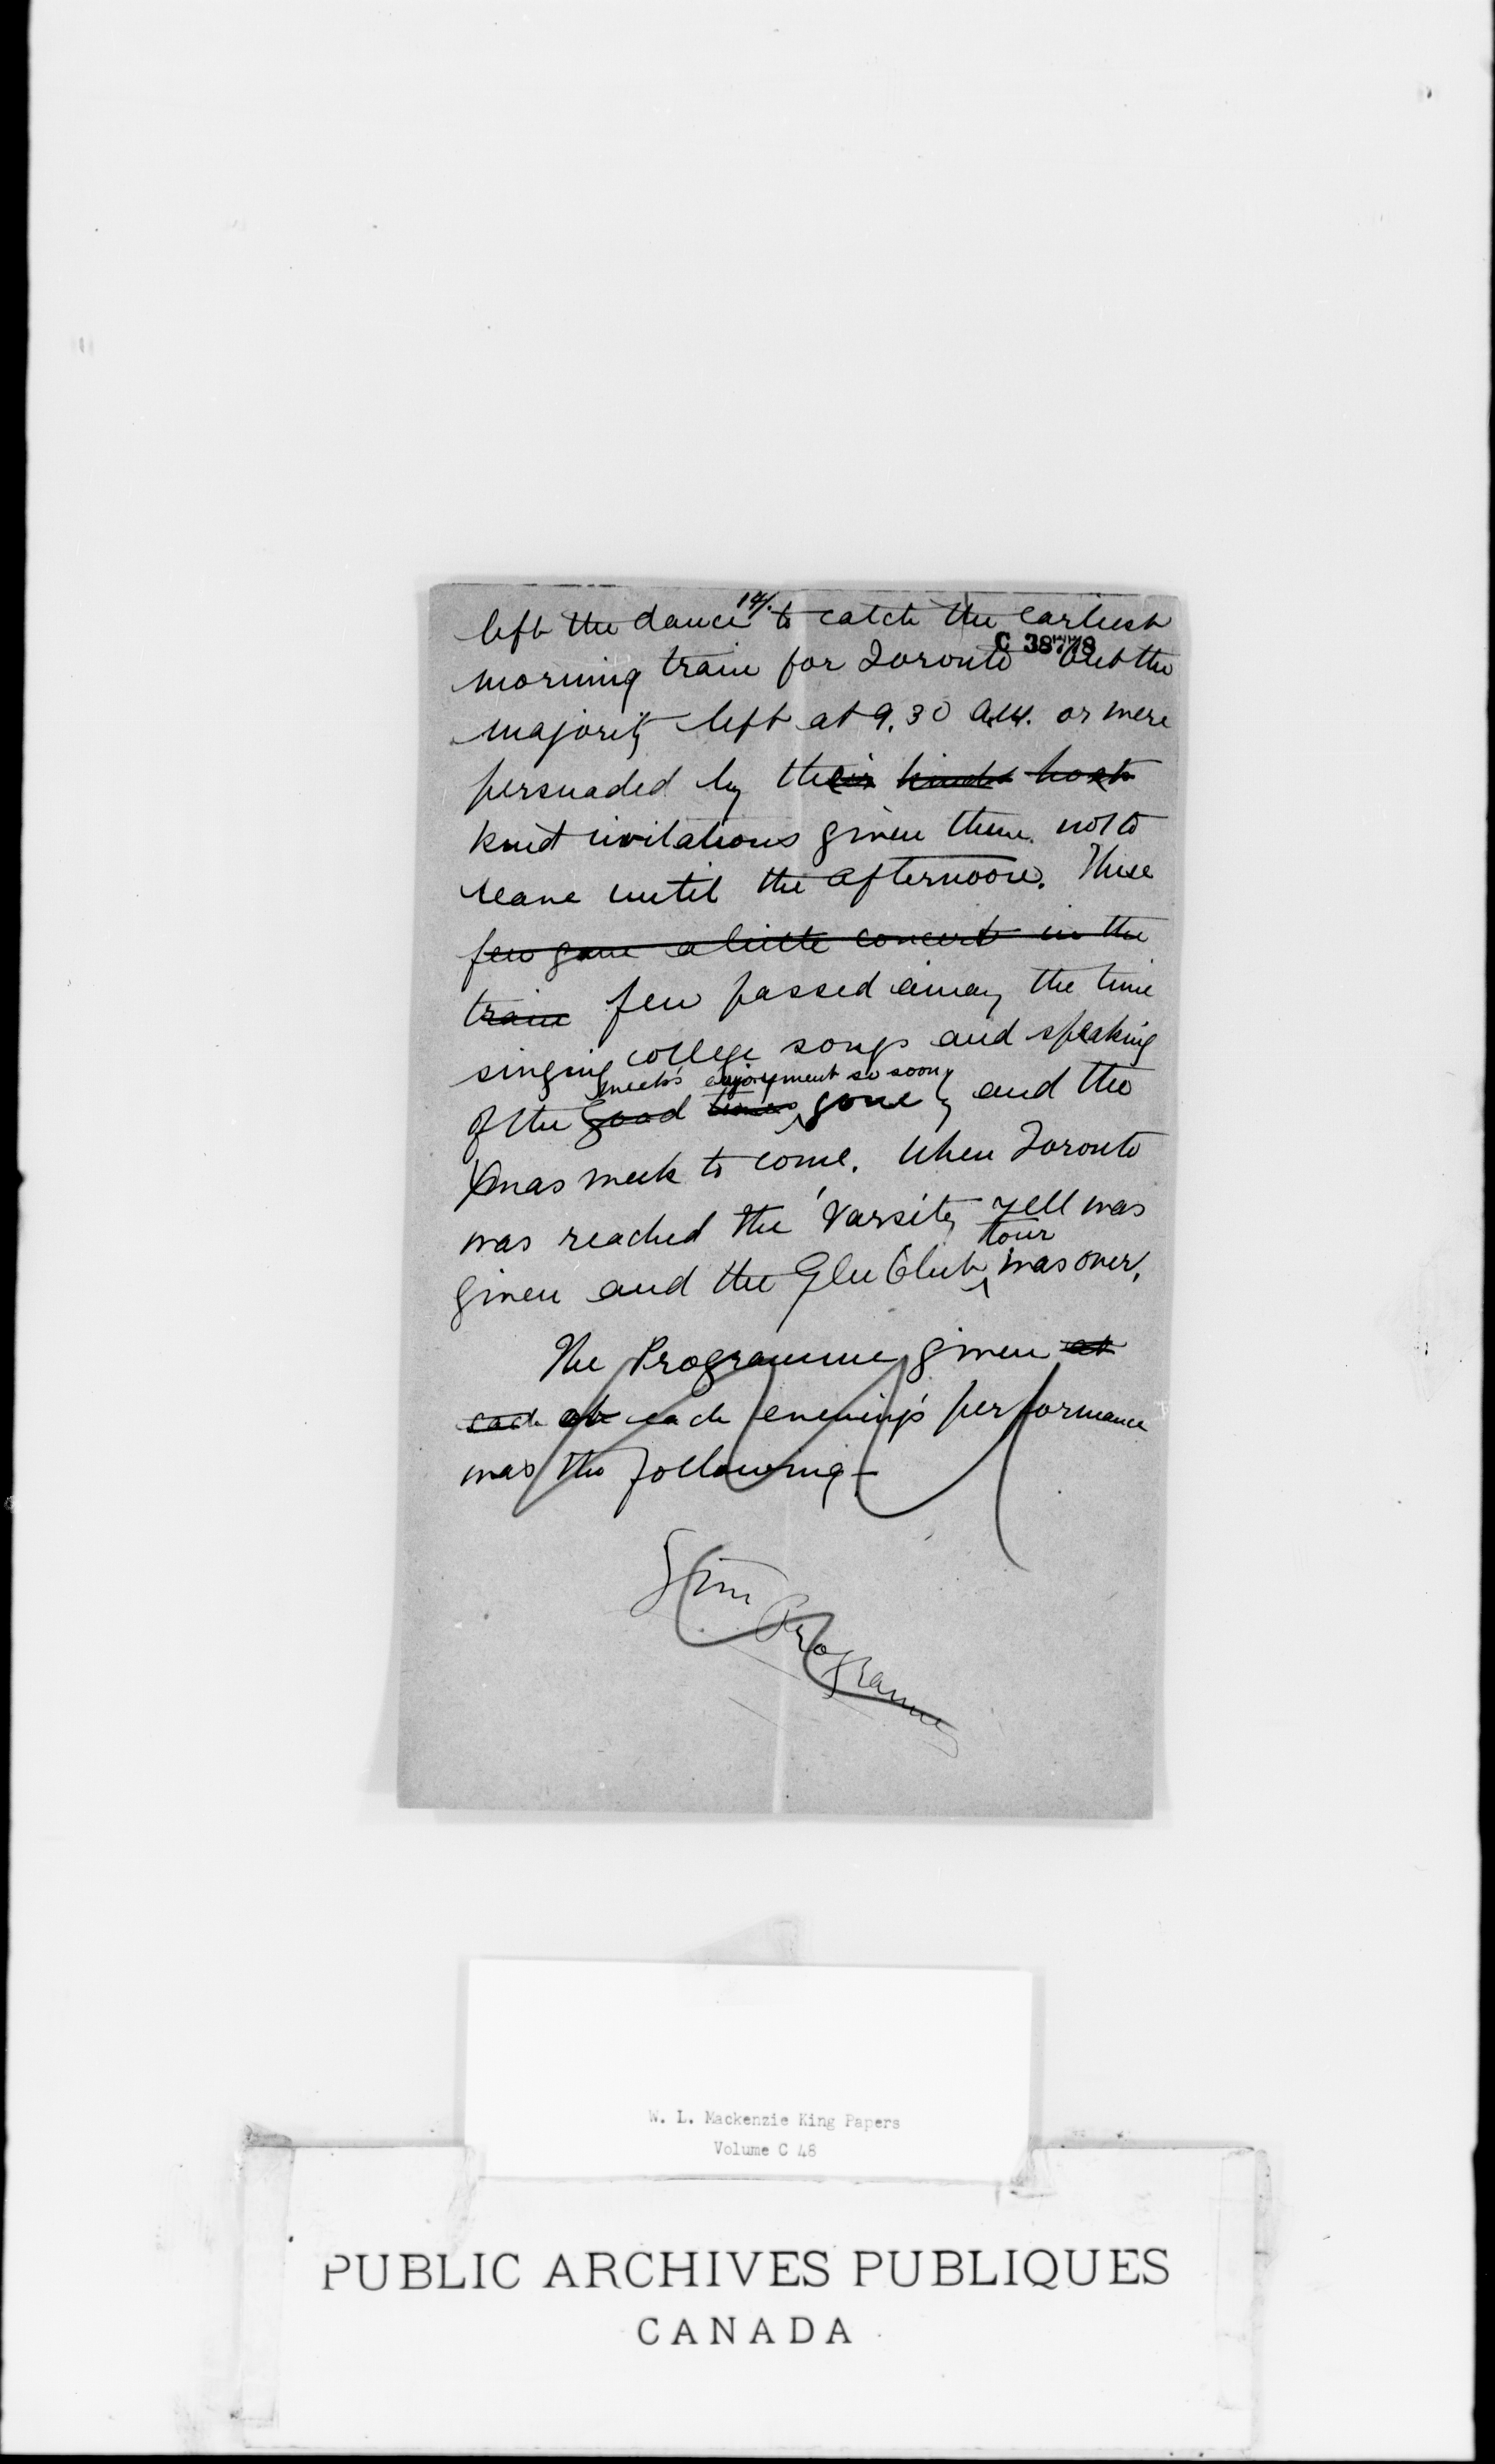 14/.
left the dance to catch the earliest
C 38778
morning train for Toronto but the
majority left at 9.30 a.m. or were
persuaded by their kind host
kind invitations given them not to
leave until the afternoon. These
few gave a little concert in the
train few passed away the time
singing college songs and speaking
week's enjoyment so soon
of the good times gone, and the
Xmas week to come. When Toronto
was reached the 'Varsity yell was
tour
given and the Glee Club was over.
The Programme given at
each at each evening's performance
was the following -
Programme
W. L. Mackenzie King Papers
Volume C 48
PUBLIC ARCHIVES PUBLIQUES
CANADA